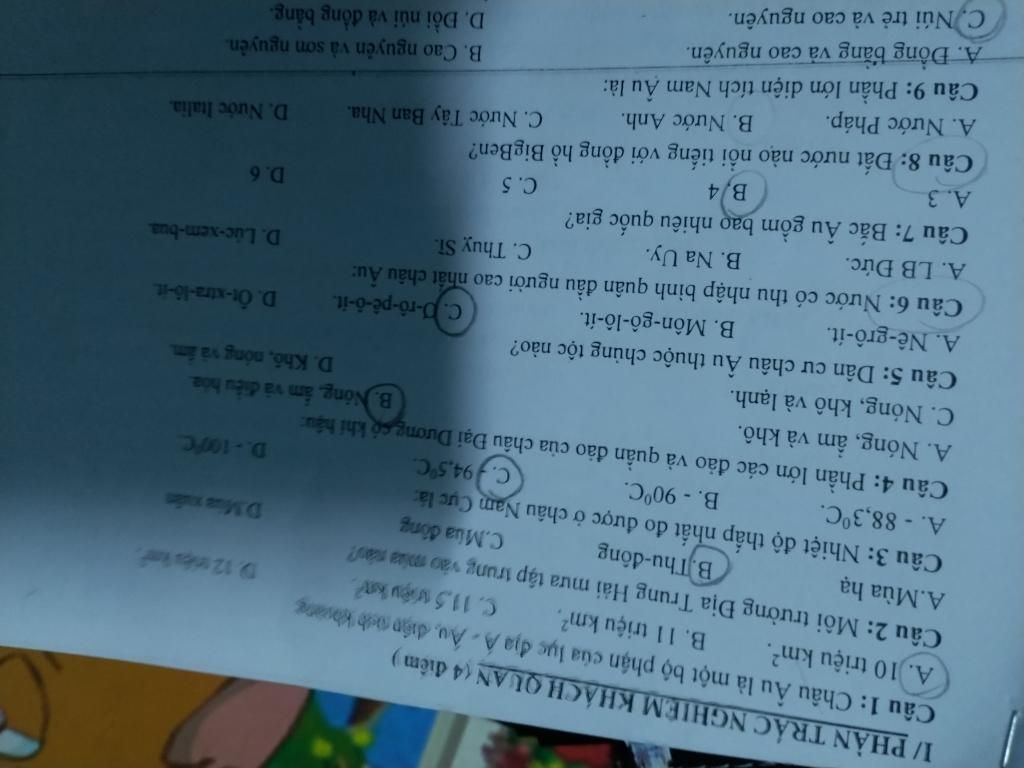 I/ PHẦN TRẮC NGHIỆM KHÁCH QUAN (4 điểm)
Câu 1: Châu Âu là một bộ phận của lục địa Á - Âu, diện tích khoảng
A. 10 triệu km². B. 11 triệu km². C. 11,5 triệu km². D. 12 triệu km².
Câu 2: Môi trường Địa Trung Hải mưa tập trung vào mùa nào?
A.Mùa hạ B.Thu-đông C.Mùa đông D.Mùa xuân
Câu 3: Nhiệt độ thấp nhất đo được ở châu Nam Cực là:
A. - 88,3⁰C. B. - 90⁰C. C. - 94,5⁰C. D. - 100⁰C
Câu 4: Phần lớn các đảo và quần đảo của châu Đại Dương có khí hậu:
A. Nóng, ẩm và khô. B. Nóng, ẩm và điều hòa.
C. Nóng, khô và lạnh. D. Khô, nóng và ẩm.
Câu 5: Dân cư châu Âu thuộc chủng tộc nào?
A. Nê-grô-it. B. Môn-gô-lô-it. C. Ơ-rô-pê-ô-it. D. Ôt-xtra-lô-it.
Câu 6: Nước có thu nhập bình quân đầu người cao nhất châu Âu:
A. LB Đức. B. Na Uy. C. Thuỵ Sĩ. D. Lúc-xem-bua.
Câu 7: Bắc Âu gồm bao nhiêu quốc gia?
A. 3 B. 4 C. 5 D. 6
Câu 8: Đất nước nào nổi tiếng với đồng hồ BigBen?
A. Nước Pháp. B. Nước Anh. C. Nước Tây Ban Nha. D. Nước Italia.
Câu 9: Phần lớn diện tích Nam Âu là:
A. Đồng bằng và cao nguyên. B. Cao nguyên và sơn nguyên.
C. Núi trẻ và cao nguyên. D. Đồi núi và đồng bằng.